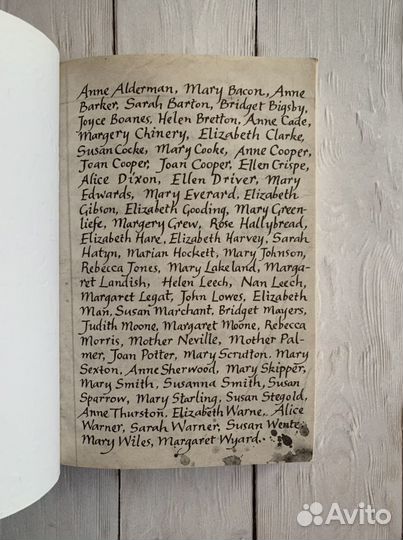 Anne Alderman, Mary Bacon, Anne
Barker, Sarah Barton, Bridget Bigsby,
Joyce Boanes, Helen Bretton, Anne Cade,
Margery Chinery, Elizabeth Clarke,
Susan Cocke, Mary Cooke, Anne Cooper,
Joan Cooper, Joan Cooper, Ellen Crispe,
Alice Dixon, Ellen Driver, Mary
Edwards, Mary Everard, Elizabeth
Gibson, Elizabeth Gooding, Mary Green-
liefe, Margery Grew, Rose Hallybread,
Elizabeth Hare, Elizabeth Harvey, Sarah
Hatyn, Marian Hockett, Mary Johnson,
Rebecca Jones, Mary Lakeland, Marga-
ret Landish, Helen Leech, Nan Leech,
Margaret Legat, John Lowes, Elizabeth
Man, Susan Marchant, Bridget Mayers,
Judith Moone, Margaret Moone, Rebecca
Morris, Mother Neville, Mother Pal-
mer, Joan Potter, Mary Scrutton, Mary
Sexton, Anne Sherwood, Mary Skipper,
Mary Smith, Susanna Smith, Susan
Sparrow, Mary Starling, Susan Stegold,
Anne Thurston, Elizabeth Warne, Alice
Warner, Sarah Warner, Susan Wente,
Mary Wiles, Margaret Wyard.
Avito